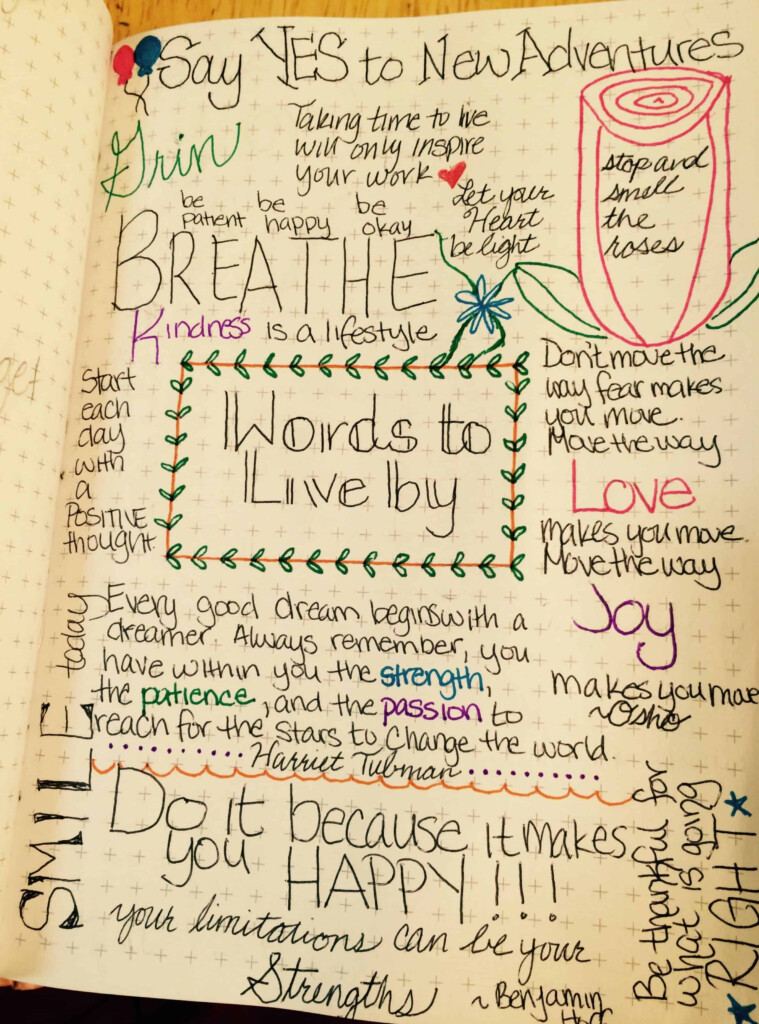 Say YES to New Adventures
Grin
Taking time to live
will only inspire
your work
stop and
smell
the
roses
be
patient
be
happy
be
okay
Let your
Heart
be light
BREATHE
Kindness is a lifestyle
Start
each
day
with
a
POSITIVE
thought.
Words to
Live by
Don't move the
way fear makes
you move.
Move the way
LOVE
makes you move.
Move the way
Joy
makes you move
~Osho
SMILE today
Every good dream begins with a
dreamer. Always remember, you
have within you the strength,
the patience, and the passion to
reach for the stars to change the world.
Harriet Tubman
Do it because it makes
you HAPPY!!!
your limitations can be your
Strengths
~Benjamin
Be thankful for
what is going
RIGHT